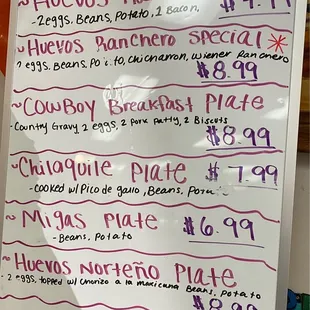 Huevos
$9.99
-2eggs, Beans, Potato, 2 Bacon,
~Huevos Ranchero Special
2 eggs, Beans, Po to, chicharron, wiener Ranchero
$8.99
~Cowboy Breakfast Plate
-Country Gravy 2 eggs, 2 Pork Patty, 2 Biscuts
$8.99
~Chilaquile Plate $7.99
-cooked w/ Pico de gallo, Beans,
~Migas Plate $6.99
-Beans, Potato
~Huevos Norteño Plate
-2 eggs, topped w/ chorizo a la mexicana Beans, Potato
$8.99